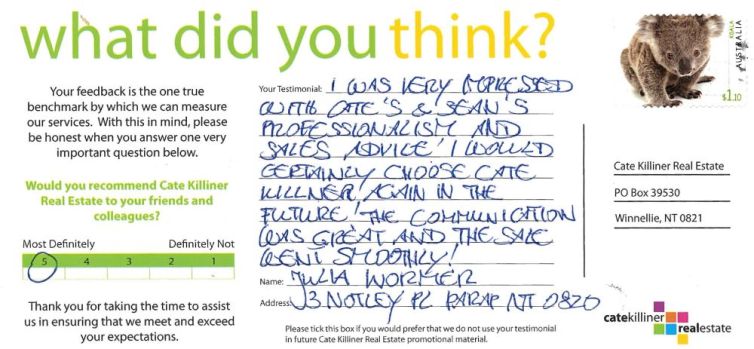 what did you think?
Your feedback is the one true
benchmark by which we can measure
our services. With this in mind, please
be honest when you answer one very
important question below.
Would you recommend Cate Killiner
Real Estate to your friends and
colleagues?
Most Definitely Definitely Not
5 4 3 2 1
Thank you for taking the time to assist
us in ensuring that we meet and exceed
your expectations.
Your Testimonial: I WAS VERY IMPRESSED
WITH CATE'S & SEAN'S
PROFESSIONALISM AND
SALES ADVICE! I WOULD
CERTAINLY CHOOSE CATE
KILLINER AGAIN IN THE
FUTURE! THE COMMUNICATION
WAS GREAT AND THE SALE
WENT SMOOTHLY!
Name: JULIA WORMER
Address: 3 NOTLEY PL PARAP NT 0820
Please tick this box if you would prefer that we do not use your testimonial
in future Cate Killiner Real Estate promotional material.
KOALA
AUSTRALIA
$1.10
Cate Killiner Real Estate
PO Box 39530
Winnellie, NT 0821
catekilliner
realestate